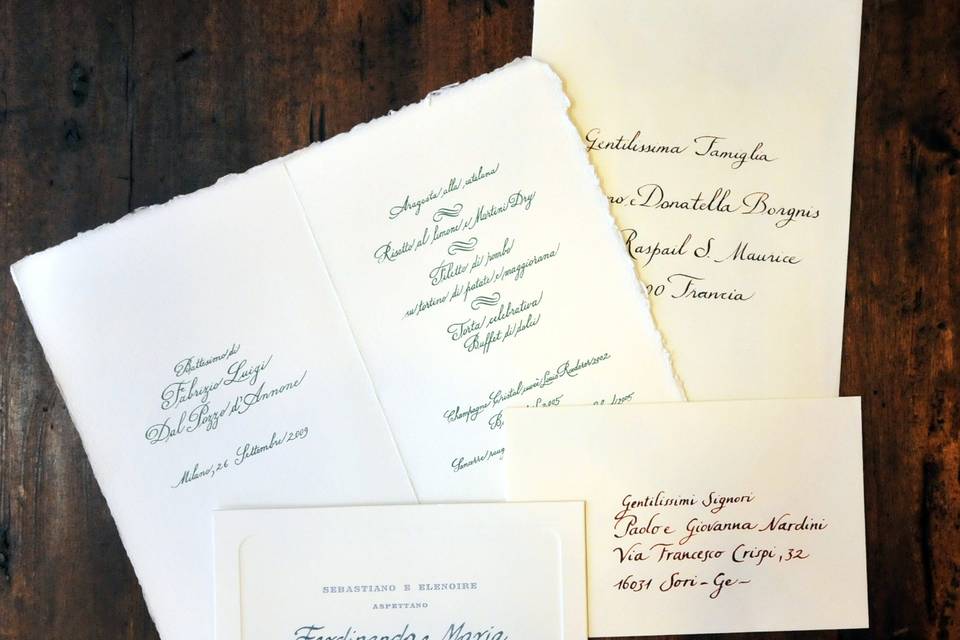 Battesimo di
Fabrizio Luigi
Dal Pozzo d'Annone
Milano, 26 Settembre 2009
Aragosta alla catalana
Risotto al limone e Martini Dry
Filetto di rombo
su tortino di patate e maggiorana
Torta celebrativa
Buffet di dolci
Champagne Cristal cuvée Louis Roederer 2002
2005
2005
Sancerre
Gentilissima Famiglia
e Donatella Borgnis
Raspail S. Maurice
00 Francia
Gentilissimi Signori
Paolo e Giovanna Nardini
Via Francesco Crispi, 32
16031 Sori - Ge -
SEBASTIANO E ELENOIRE
ASPETTANO
Ferdinando e Maria